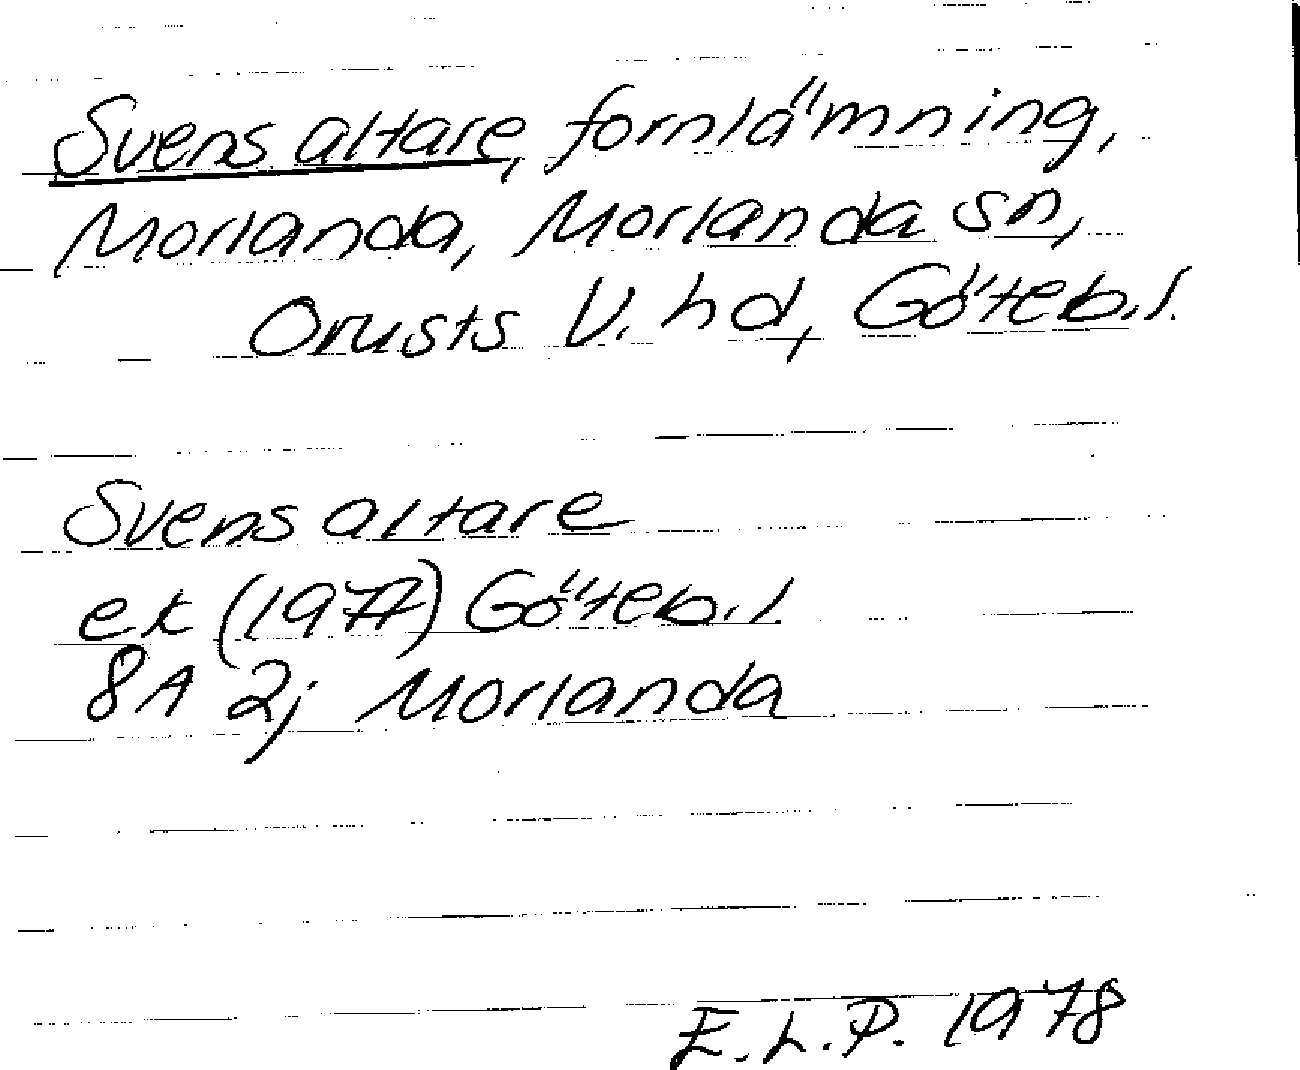 Svens altare, fornlämning,
Morlanda, Morlanda sn,
Orusts V. hd, Göteb.l.
Svens altare
ek (1977) Göteb.l.
8A 2j Morlanda
E.L.P. 1978